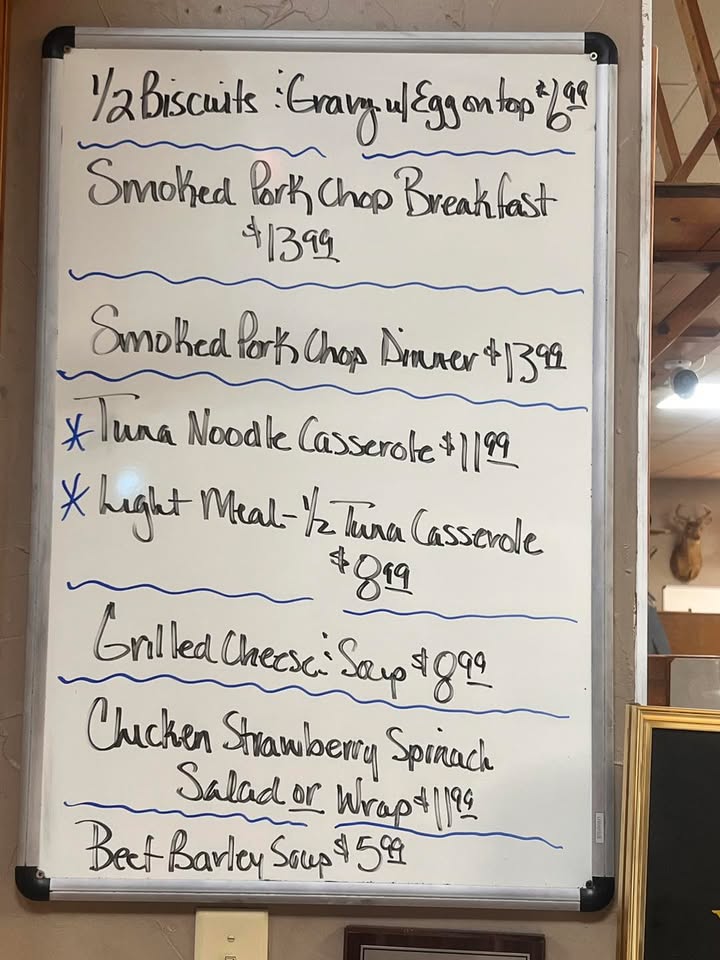 1/2 Biscuits & Gravy w/ Egg on top $6.99
Smoked Pork Chop Breakfast
$13.99
Smoked Pork Chop Dinner $13.99
* Tuna Noodle Casserole $11.99
* Light Meal - 1/2 Tuna Casserole
$8.99
Grilled Cheese & Soup $8.99
Chicken Strawberry Spinach
Salad or Wrap $11.99
Beef Barley Soup $5.99